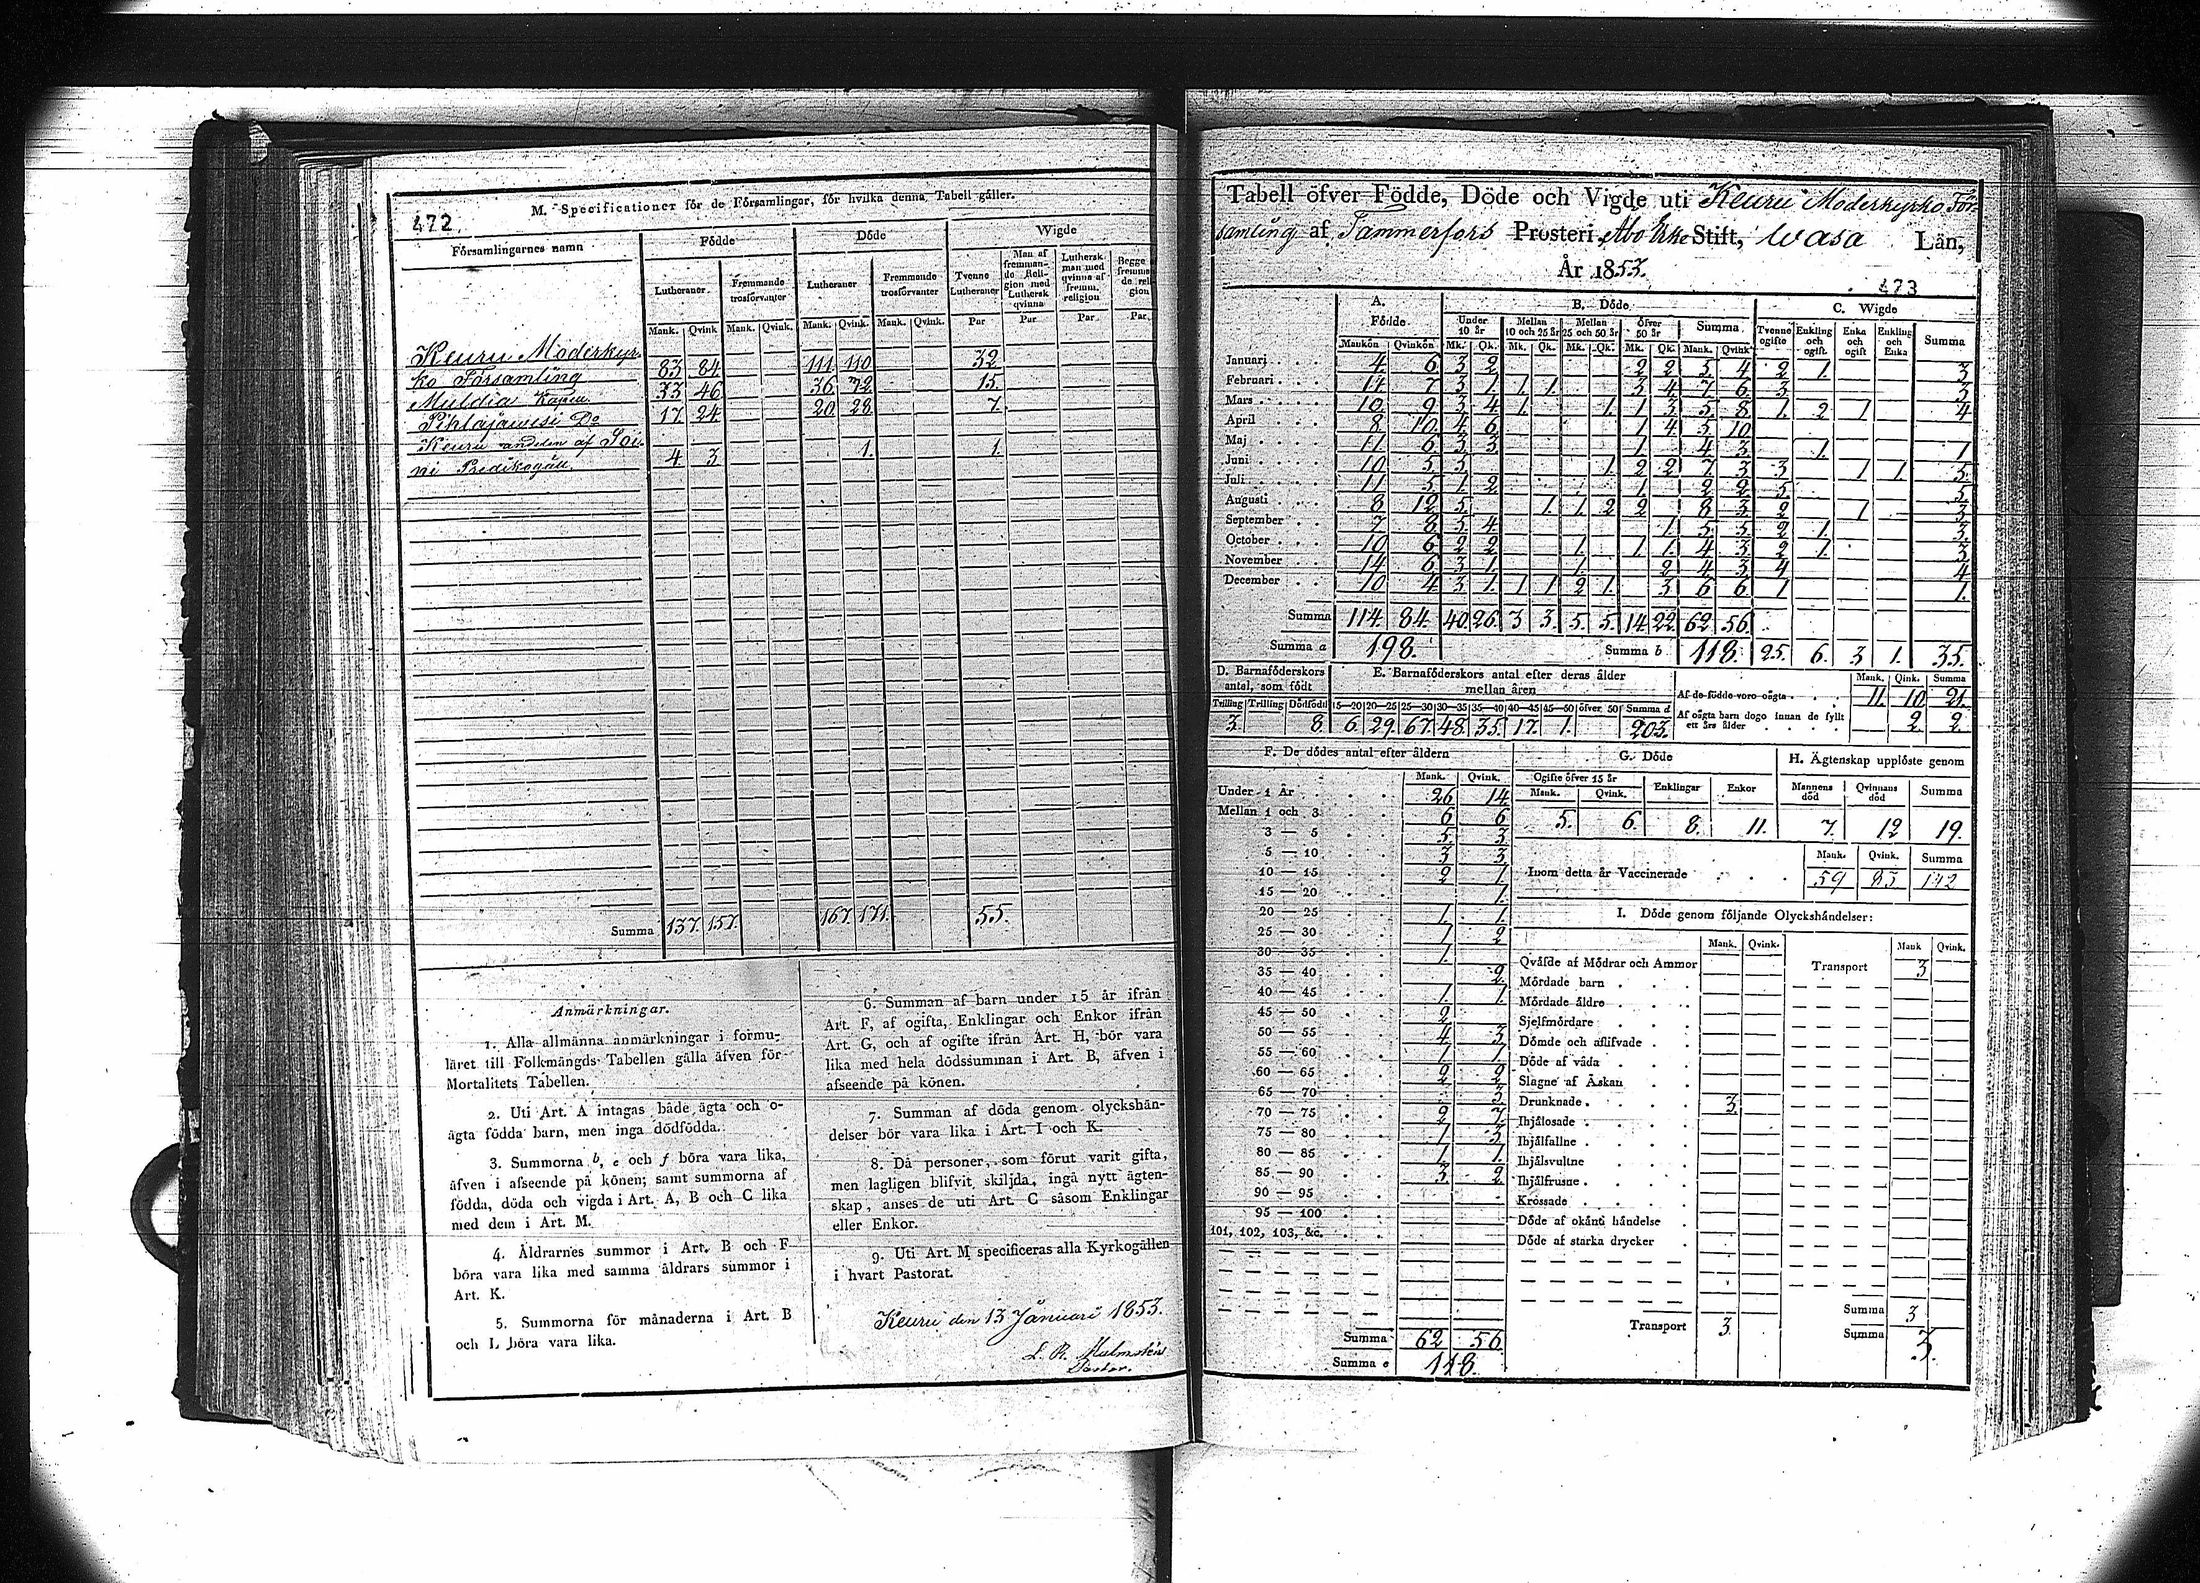 472
M. Specificationer för de Församlingar, för hvilka denna Tabell gäller.
Församlingarnes namn
Födde
Döde
Wigde
Lutheraner
Fremmande trosförvanter
Lutheraner
Fremmande trosförvanter
Tvenne Lutheraner
Man af fremmande Religion med Luthersk qvinna
Luthersk man med qvinna af fremm. religion
Begge fremmande religion
Mank. Qvink Mank. Qvink. Mank. Qvink. Mank. Qvink. Par Par Par Par.
Keuru Moderkyr-
ko Församling 83 84 111 110 32
Muldia Kapell 33 46 36 72 15.
Pihlajavesi Do 17 24 20 28 7.
Keuru andelen af Soi-
ni Predikogäll. 4 3 1. 1.
Summa 137. 157. 167. 171. 55.
Anmärkningar.
1. Alla allmänna anmärkningar i formu-
läret till Folkmängds Tabellen gälla äfven för
Mortalitets Tabellen.
2. Uti Art. A intagas både ägta och o-
ägta födda barn, men inga dödfödda.
3. Summorna b, e och f böra vara lika,
äfven i afseende på könen; samt summorna af
födda, döda och vigda i Art. A, B och C lika
med dem i Art. M.
4. Åldrarnes summor i Art. B och F
böra vara lika med samma åldrars summor i
Art. K.
5. Summorna för månaderna i Art. B
och L böra vara lika.
6. Summan af barn under 15 år ifrån
Art. F, af ogifta, Enklingar och Enkor ifrån
Art. G, och af ogifte ifrån Art. H, bör vara
lika med hela dödssumman i Art. B, äfven i
afseende på könen.
7. Summan af döda genom olyckshän-
delser bör vara lika i Art. I och K.
8. Då personer, som förut varit gifta,
men lagligen blifvit skiljda, ingå nytt ägten-
skap, anses de uti Art. C såsom Enklingar
eller Enkor.
9. Uti Art. M specificeras alla Kyrkogällen
i hvart Pastorat.
Keuru den 13 Januari 1853.
Pastor.
Tabell öfver Födde, Döde och Vigde uti Keuru Moderkyrko För-
samling af Tammerfors Prosteri, Abo Erke Stift, Wasa Län,
År 1853.
473
A. Födde
B. Döde
C. Wigde
Under 10 år
Mellan 10 och 25 år
Mellan 25 och 50 år
öfver 50 år
Summa
Tvenne ogifte
Enkling och ogift
Enka och ogift
Enkling och Enka
Summa
Mankön Qvinkön Mk. Qk. Mk. Qk. Mk. Qk. Mk. Qk. Mank. Qvink
Januari 4 6 3 2 2 2 5 4 2 1. 3
Februari 11 7 3 1. 1. 1 3 4 7 6 3 3
Mars 10 9 3 4 1. 1. 1 3 5 8 1. 2 1 4
April 8 10 4 6 1 4 5 10
Maj 11 6 3 3 1. 4 3 1. 1
Juni 10 5 5 1. 2 2 7 3 3 1 1. 5
Juli 11 5 1. 2 1. 2 2 5 5.
Augusti 8 12 5 1 1. 2 2 8 3 2 1 3
September 7 8 5 4 1. 5 5 2 1. 3
October 10 6 2 2 1. 1 1. 4 3 2 1. 3
November 14 6 3 1. 1. 2 4 3 4 4
December 10 4 3 1. 1 1 2 1. 3 6 6 1 1.
Summa 114. 84. 40 26. 3 3. 5. 5. 14 22. 62 56.
Summa a 198. Summa b 118. 25. 6. 3 1. 35.
D. Barnaföderskors antal, som födt
E. Barnaföderskors antal efter deras ålder mellan åren
Tvilling Trilling Dödfödt 15—20 20—25 25—30 30—35 35—40 40—45 45—50 öfver 50 Summa d
3. 8. 6. 29. 67. 48. 35. 17. 1. 203.
Mank. Qink. Summa
Af de födde voro oägta 11. 10 21.
Af oägta barn dogo innan de fyllt ett års ålder 2. 2.
F. De dödes antal efter åldern
Mank. Qvink.
Under 1 År 26 14
Mellan 1 och 3 6 6
3 — 5 5 3
5 — 10 3 3
10 — 15 2 1.
15 — 20 1.
20 — 25 1. 1.
25 — 30 1 2
30 — 35 1.
35 — 40 2
40 — 45 1. 1.
45 — 50 2
50 — 55 4 3
55 — 60 1 1.
60 — 65 2 2
65 — 70 3
70 — 75 2 7
75 — 80 1 3
80 — 85 1 1.
85 — 90 3 2
90 — 95
95 — 100
101, 102, 103, &c.
Summa 62 56.
Summa e 118.
G. Döde
Ogifte öfver 15 år
Mank. Qvink. Enklingar Enkor
5. 6. 8. 11.
H. Ägtenskap upplöste genom
Mannens död Qvinnans död Summa
7. 12 19.
Mank. Qvink. Summa
Inom detta år Vaccinerade 59 83 142
I. Döde genom följande Olyckshändelser:
Mank. Qvink. Mank Qvink.
Qväfde af Mödrar och Ammor Transport 3
Mördade barn
Mördade äldre
Sjelfmördare
Dömde och aflifvade
Döde af våda
Slagne af Åskan
Drunknade 3
Ihjälosade
Ihjälfallne
Ihjälsvultne
Ihjälfrusne
Krossade
Döde af okänd händelse
Döde af starka drycker
Summa 3
Transport 3 Summa 3.